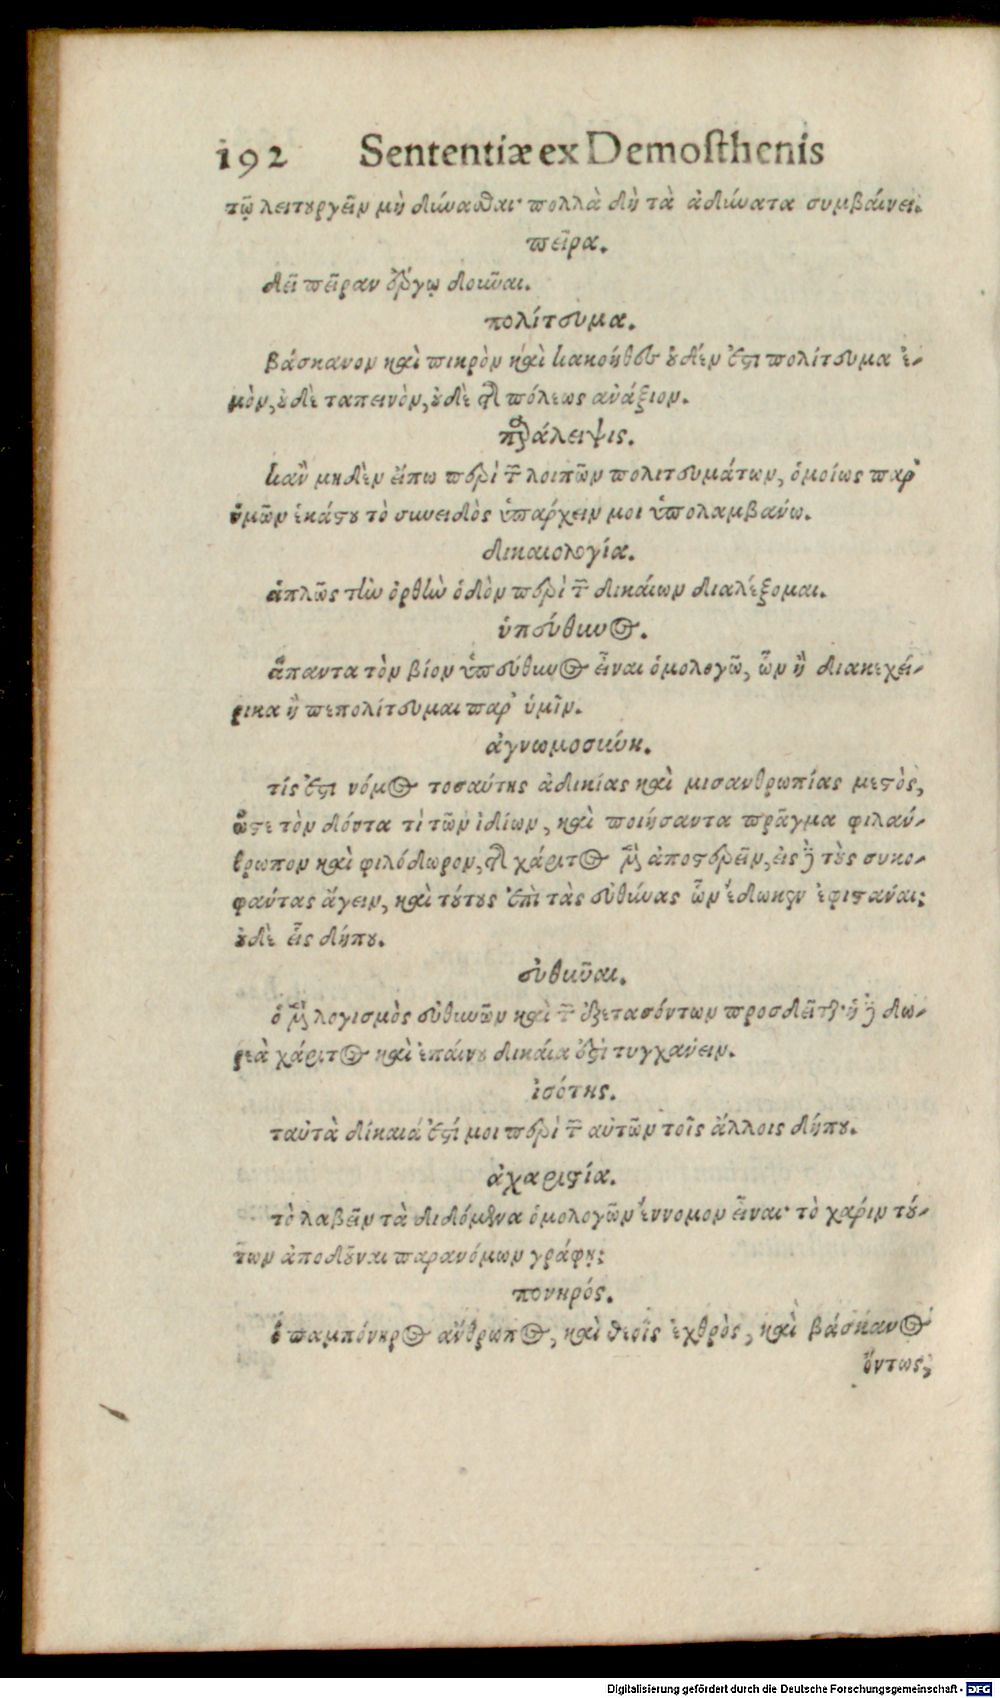 192 Sententiæ ex Demosthenis
τῷ λειτουργεῖν μὴ δύνασθαι· πολλὰ δὴ τὰ ἀδύνατα συμβαίνει.
πεῖρα.
δεῖ πεῖραν ἔργῳ δοῦναι.
πολίτευμα.
βάσκανον καὶ πικρὸν καὶ κακοήθες οὐδέν ἐστι πολίτευμα ἐ-
μὸν, οὐδὲ ταπεινὸν, οὐδὲ τῆς πόλεως ἀνάξιον.
παράλειψις.
κἂν μηδὲν εἴπω περὶ τῶν λοιπῶν πολιτευμάτων, ὁμοίως παρ'
ὑμῶν ἑκάστου τὸ συνειδὸς ὑπάρχειν μοι ὑπολαμβάνω.
δικαιολογία.
ἁπλῶς τὴν ὀρθὴν ὁδὸν περὶ τῶν δικαίων διαλέξομαι.
ὑπεύθυνος.
ἅπαντα τὸν βίον ὑπεύθυνος εἶναι ὁμολογῶ, ὧν ἢ διακεχεί-
ρικα ἢ πεπολίτευμαι παρ' ὑμῖν.
ἀγνωμοσύνη.
τίς ἐστι νόμος τοσαύτης ἀδικίας καὶ μισανθρωπίας μεστὸς,
ὥστε τὸν δόντα τὶ τῶν ἰδίων, καὶ ποιήσαντα πρᾶγμα φιλάν-
θρωπον καὶ φιλόδωρον, τῆς χάριτος μὲν ἀποστερεῖν, εἰς δὲ τοὺς συκο-
φάντας ἄγειν, καὶ τούτους ἐπὶ τὰς εὐθύνας ὧν ἔδωκεν ἐφιστάναι;
οὐδὲ εἷς δήπου.
εὐθῦναι.
ὁ μὲν λογισμὸς εὐθυνῶν καὶ τῶν ἐξετασόντων προσδεῖται· ἡ δὲ δω-
ρεὰ χάριτος καὶ ἐπαίνου δικαία ἐστὶ τυγχάνειν.
ἰσότης.
ταὐτὰ δίκαιά ἐστί μοι περὶ τῶν αὐτῶν τοῖς ἄλλοις δήπου.
ἀχαριστία.
τὸ λαβεῖν τὰ διδόμενα ὁμολογῶν ἔννομον εἶναι· τὸ χάριν τού-
των ἀποδοῦναι παρανόμων γράφῃ;
πονηρός.
ὁ παμπόνηρος ἄνθρωπος, καὶ θεοῖς ἐχθρὸς, καὶ βάσκανος
ὄντως,
Digitalisierung gefördert durch die Deutsche Forschungsgemeinschaft - DFG